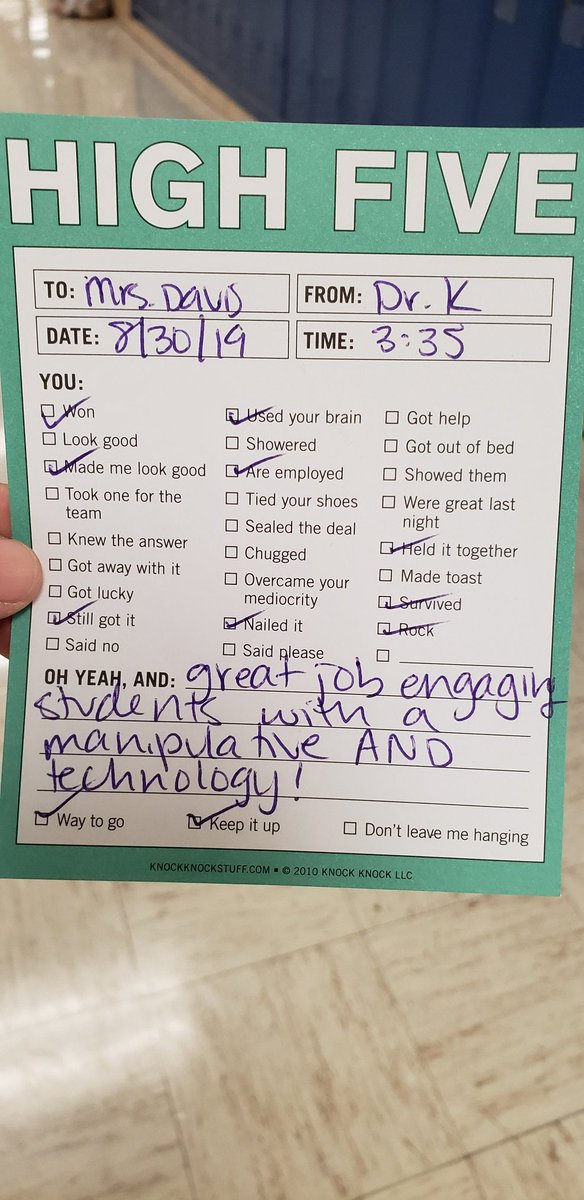 HIGH FIVE
TO: Mrs. Davis FROM: Dr. K
DATE: 8/30/19 TIME: 3:35
YOU:
Won
Look good
Made me look good
Took one for the
team
Knew the answer
Got away with it
Got lucky
Still got it
Said no
Used your brain
Showered
Are employed
Tied your shoes
Sealed the deal
Chugged
Overcame your
mediocrity
Nailed it
Said please
Got help
Got out of bed
Showed them
Were great last
night
Held it together
Made toast
Survived
Rock
OH YEAH, AND: great job engaging
students with a
manipulative AND
technology!
Way to go Keep it up Don't leave me hanging
KNOCKKNOCKSTUFF.COM ▪ © 2010 KNOCK KNOCK LLC